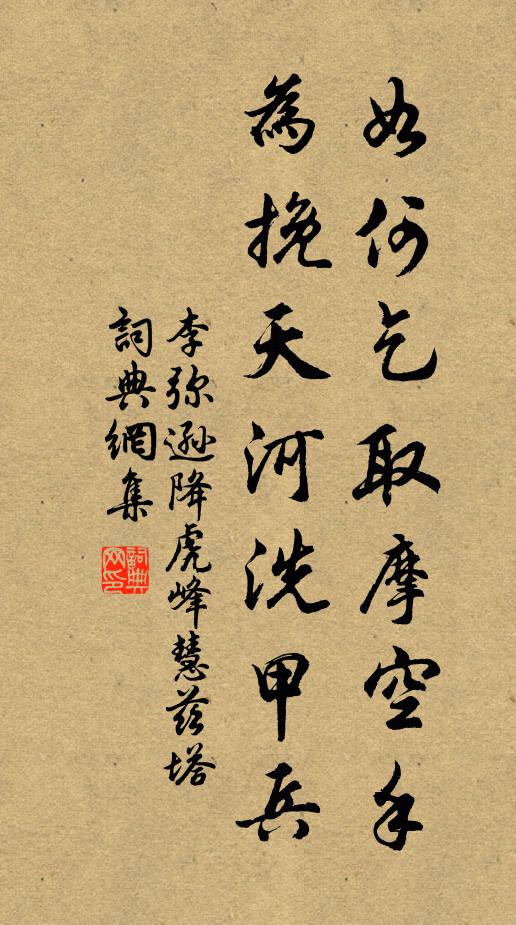 如何乞取摩空手
為挽天河洗甲兵
李弥遜降虎峰慧茲塔
詞典網集
詞典网印